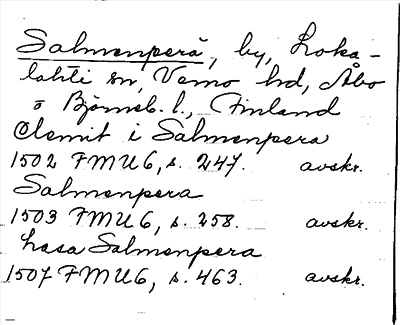 Salmenperä, by, Loka-
lahti sn, Vemo hd, Åbo
o Björneb. l., Finland
Clemit i Salmenpera
1502 FMU6, s. 247. avskr.
Salmenpera
1503 FMU6, s. 258. avskr.
Lasa Salmenpera
1507 FMU6, s. 463. avskr.